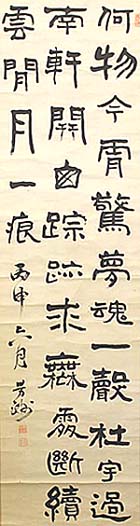 何物今霄驚夢魂一聲杜宇過
南軒開囱踪跡求無處斷續
雲閒月一痕
丙申六月